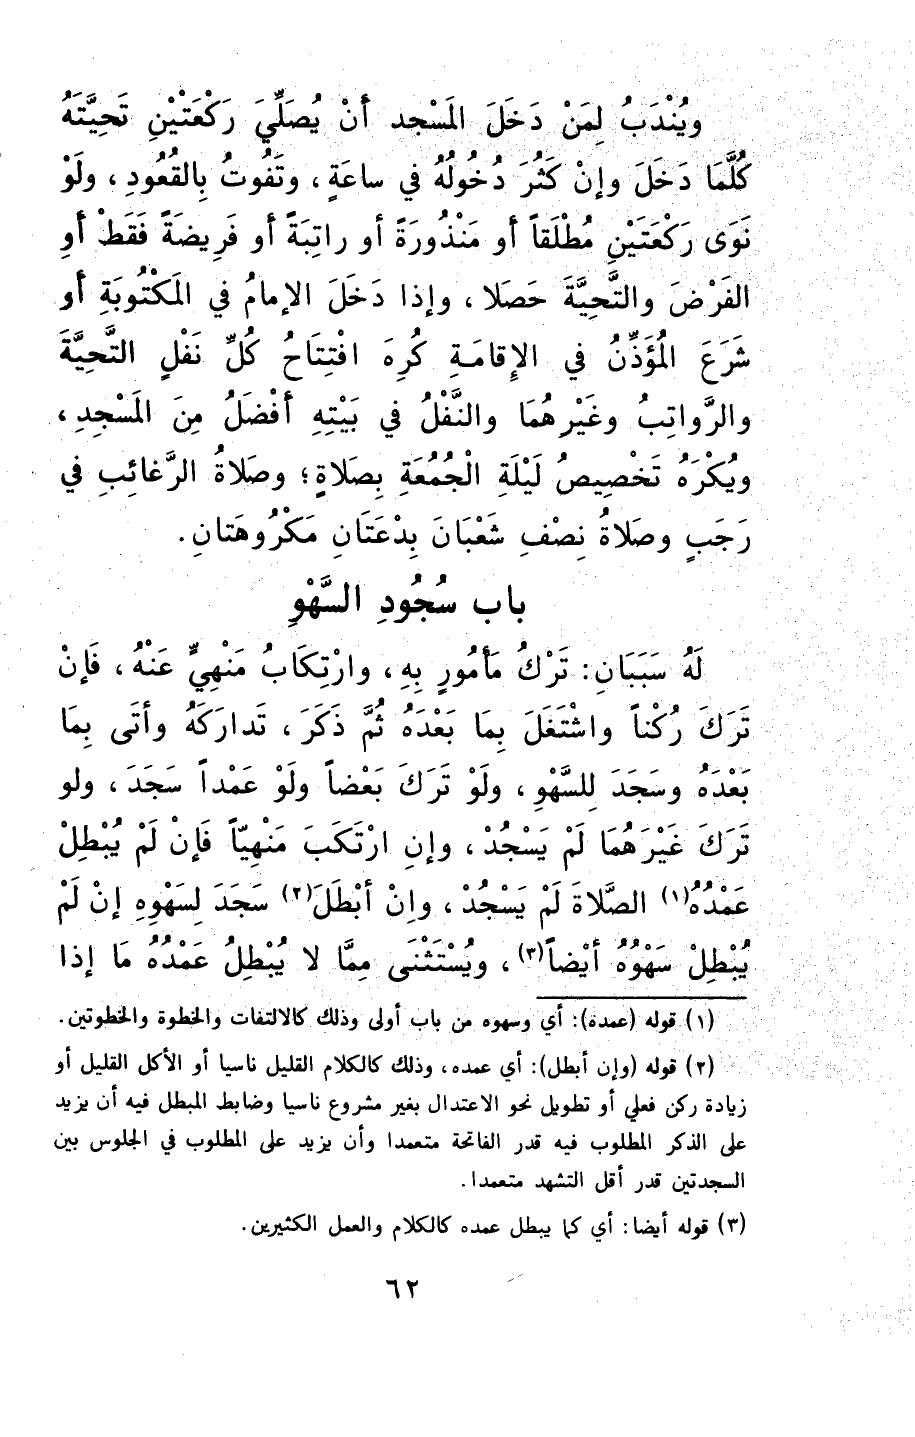 ويُنْدَبُ لِمَنْ دَخَلَ المَسْجِد أَنْ يُصَلِّيَ رَكْعَتَيْنِ تَحِيَّتَهُ
كُلَّمَا دَخَلَ وإنْ كَثُرَ دُخُولُهُ في ساعَةٍ، وتَفُوتُ بِالقُعُودِ، ولَوْ
نَوَى رَكْعَتَيْنِ مُطْلَقاً أو مَنْذُورَةً أو راتِبَةً أو فَرِيضَةً فَقَطْ أوِ
الفَرْضَ والتَّحِيَّةَ حَصَلا، وإذا دَخَلَ الإمامُ في المَكْتُوبَةِ أو
شَرَعَ المُؤَذِّنُ في الإقامَةِ كُرِهَ افْتِتَاحُ كُلِّ نَفْلٍ التَّحِيَّةَ
والرَّواتِبُ وغَيْرِهُمَا والنَّفْلُ في بَيْتِهِ أفْضَلُ مِنَ المَسْجِدِ،
ويُكْرَهُ تَخْصِيصُ لَيْلَةِ الْجُمُعَةِ بِصَلاةٍ؛ وصَلاةُ الرَّغائِبِ في
رَجَبٍ وصَلاةُ نِصْفِ شَعْبَانَ بِدْعَتَانِ مَكْرُوهَتانِ.
باب سُجُودِ السَّهْوِ
لَهُ سَبَبَانِ: تَرْكُ مَأمُورٍ بِهِ، وارْتِكَابُ مَنْهِيٍّ عَنْهُ، فَإنْ
تَرَكَ رُكْناً واشْتَغَلَ بِمَا بَعْدَهُ ثُمَّ ذَكَرَ، تَدارَكَهُ وأتَى بِمَا
بَعْدَهُ وسَجَدَ لِلسَّهْوِ، ولَوْ تَرَكَ بَعْضاً ولَوْ عَمْداً سَجَدَ، ولو
تَرَكَ غَيْرَهُمَا لَمْ يَسْجُدْ، وإنِ ارْتَكَبَ مَنْهِيّاً فَإنْ لَمْ يُبْطِلْ
عَمْدُهُ(١) الصَّلاةَ لَمْ يَسْجُدْ، وإنْ أبْطَلَ(٢) سَجَدَ لِسَهْوِهِ إنْ لَمْ
يُبْطِلْ سَهْوُهُ أيْضاً(٣)، ويُسْتَثْنَى مِمَّا لا يُبْطِلُ عَمْدُهُ مَا إذا
(١) قوله (عمده): أي وسهوه من باب أولى وذلك كالالتفات والخطوة والخطوتين.
(٢) قوله (وإن أبطل): أي عمده، وذلك كالكلام القليل ناسيا أو الأكل القليل أو
زيادة ركن فعلي أو تطويل نحو الاعتدال بغير مشروع ناسيا وضابط المبطل فيه أن يزيد
على الذكر المطلوب فيه قدر الفاتحة متعمدا وأن يزيد على المطلوب في الجلوس بين
السجدتين قدر أقل التشهد متعمدا.
(٣) قوله أيضا: أي كما يبطل عمده كالكلام والعمل الكثيرين.
٦٢